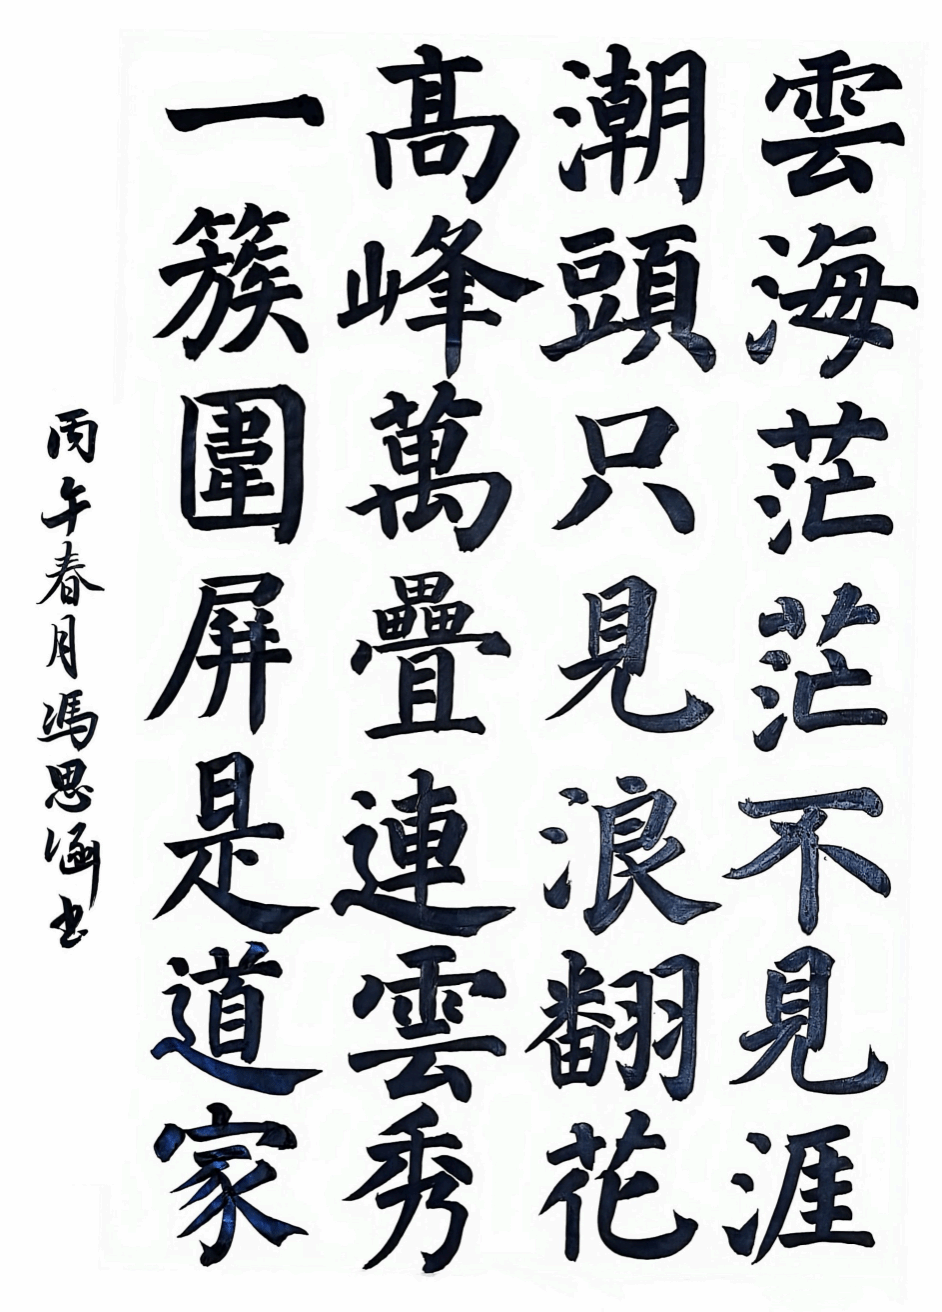 雲海茫茫不見涯
潮頭只見浪翻花
高峰萬疊連雲秀
一簇圍屏是道家
丙午春月馮思涵书